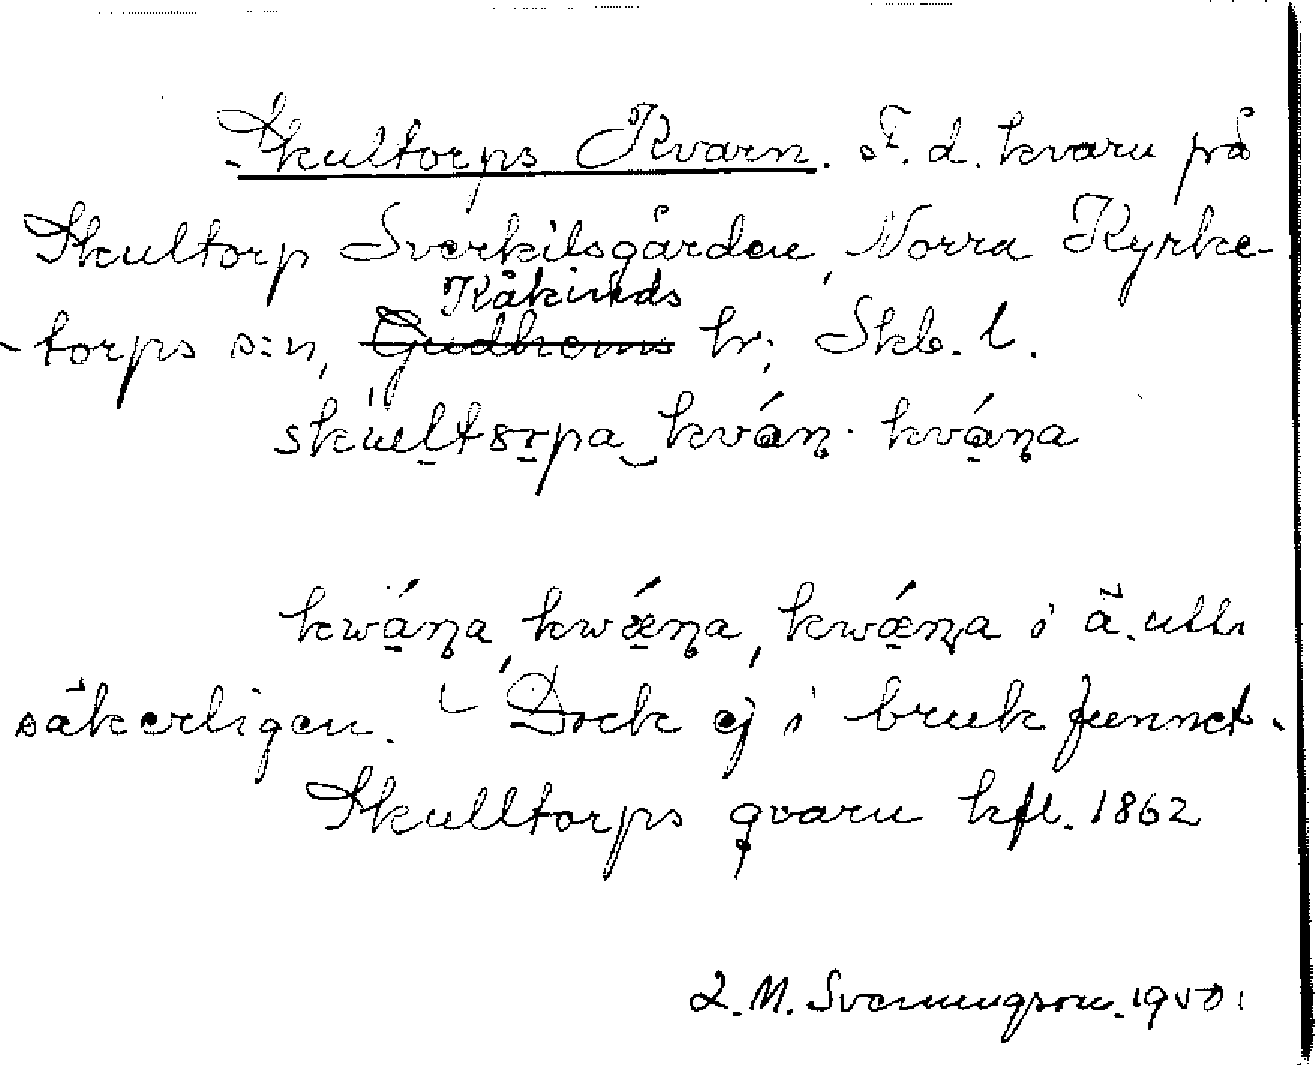 Skultorps Kvarn. F. d. kvarn på
Skultorp Sverkilsgården, Norra Kyrke-
-torps s:n, Kåkinds ~~Gudhems~~ hr; Skb. l.
skueltsrpa kván. kvána
kwána, kwǽna, kwǽna i ä. utt.
säkerligen. Dock ej i bruk funnet.
Skulltorps qvarn kfl. 1862
L. M. Svenungson. 1950.